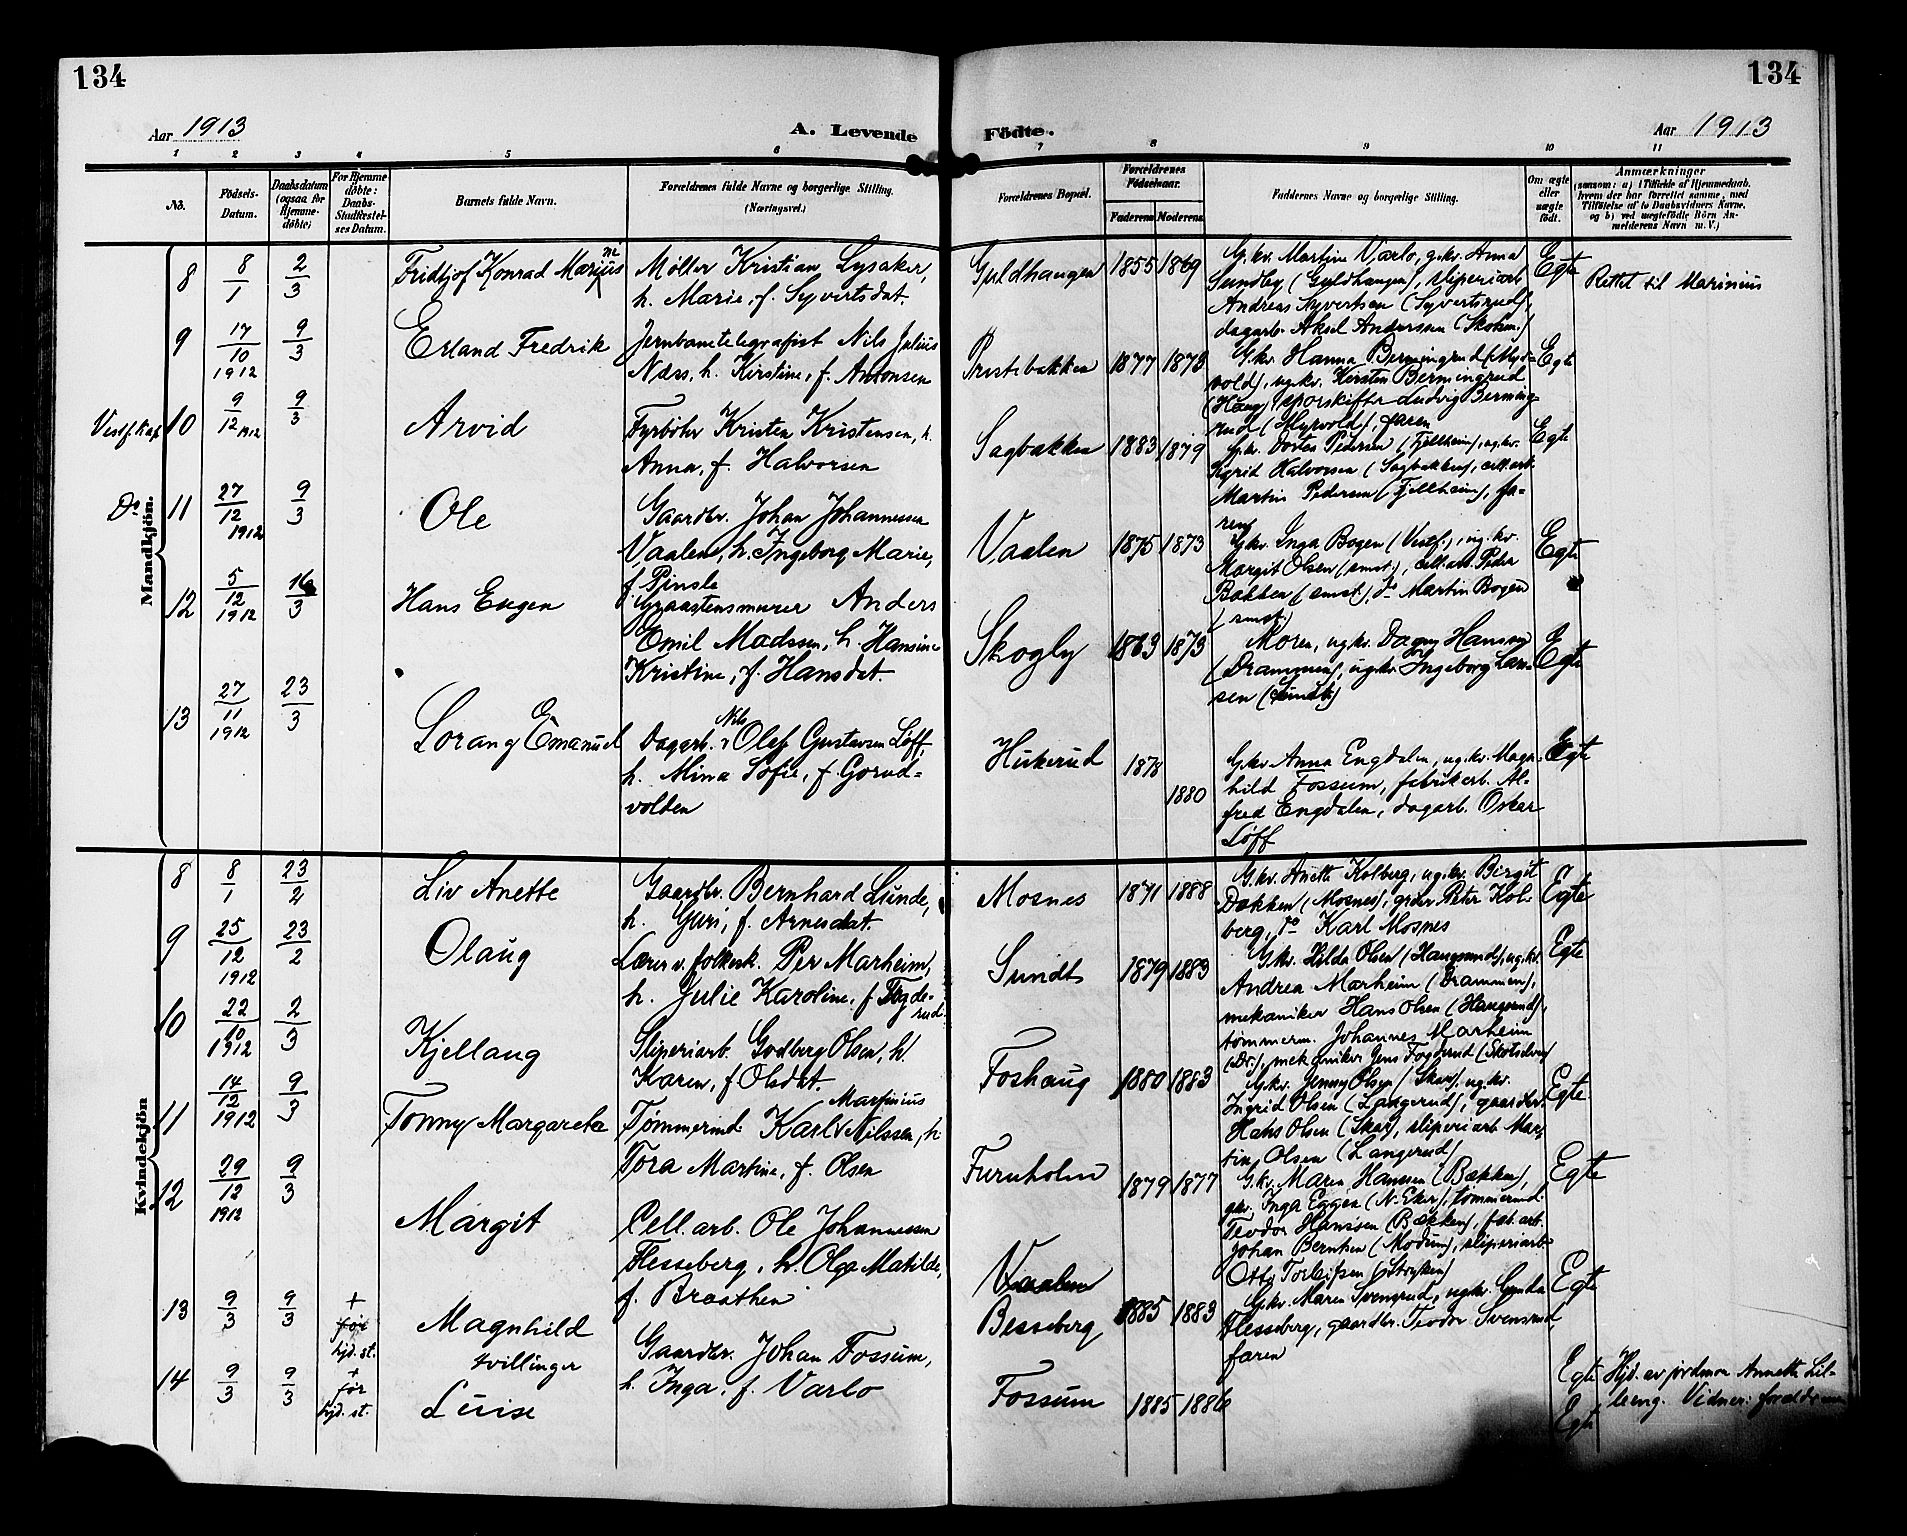 134
134
Aar 1913
A. Levende Födte.
Aar 1913
1 2 3 4 5 6 7 8 9 10 11
No.
Födsels-Datum.
Daabsdatum (ogsaa för Hjemmedöbte)
For Hjemmedöbte: Daabs-Stadfæstelses Datum.
Barnets fulde Navn.
Forældrenes fulde Navne og borgerlige Stilling. (Næringsvei.)
Forældrenes Bopæl.
Forældrenes Födselsaar.
Faderens Moderens
Faddernes Navne og borgerlige Stilling.
Om ægte eller uægte födt.
Anmærkninger
(saasom: a) i Tilfælde af Hjemmedaab, hvem der har forrettet samme, med Tilföielse af to Daabsvidners Navne, og b) ved uægtefödte Börn Anmelderens Navn m. V.)
Mandkjön.
8 8/1 2/3 Fridtjof Konrad Marius
Møller Kristian Lysaker,
h. Marie, f. Syvertsdat.
Guldhaugen 1855 1869
G.kv. Martine Varlo, g.kv. Anna
Sundby (Guldhaugen), sliperiarb.
Andreas Syvertsen (Syvertsrud),
dagarb. Aksel Anderssen
Egte
Rettet til Marinius
9 17/10 1912 9/3 Erland Fredrik
Jernbanetelegrafist Nils Julius
Næss, h. Kirstine, f. Antonsen
Prestebakken 1877 1873
G.kv. Hanna Bermingrud (Myrvold),
ug.kv. Kirsten Bermingrud
(Haug), sporskifter Ludvig Bermingrud
(Myrvold), faren
Egte
Vestf. kap. 10 9/12 1912 9/3 Arvid
Fyrbøter Kristen Kristensen, h.
Anna, f. Halvorsen
Sagbakken 1883 1879
G.kv. Dorten Pedersen (Fjellheim), ug.kv.
Sigrid Halvorsen (Sagbakken), cell.arb.
Martin Pedersen (Fjellheim), faren
Egte
Do 11 27/12 1912 9/3 Ole
Gaardbr. Johan Johannessen
Vaalen, h. Ingeborg Marie,
f. Pinsle
Vaalen 1875 1873
G.kv. Inga Bogen (Vestf.), ug.kv.
Margit Olsen (smst.), cell.arb. Peder
Bakken (smst.), do Martin Bogen
(smst.)
Egte
12 5/12 1912 16/3 Hans Eugen
Graastensmurer Anders
Emil Madssen, h. Hansine
Kristine, f. Hansdat.
Skogly 1863 1873
Moren, ug.kv. Dagny Hanssen
(Drammen), ug.kv. Ingeborg Larssen
(smst.)
Egte
13 27/11 1912 23/3 Lorang Emanuel
Dagarb. Nils Olef Gustavsen Løff,
h. Mina Sofie, f. Gorudvolden
Hukerud 1878 1880
G.kv. Anna Engdalen, ug.kv. Magnhild
Fossum, fabrikarb. Alfred
Engdalen, dagarb. Oskar
Løff
Egte
Kvindekjön
8 8/1 23/2 Liv Anette
Gaardbr. Bernhard Lunde,
h. Guri, f. Arnesdat.
Mosnes 1871 1888
G.kv. Anette Kolberg, ug.kv. Birgit
Dokken (Mosnes), grder Peter Kolberg,
do Karl Mosnes
Egte
9 25/12 1912 23/2 Olaug
Lærer v. folkesk. Per Marheim,
h. Julie Karoline, f. Fogderud
Sundt 1879 1883
G.kv. Hilda Olsen (Haugsund), ug.kv.
Andrea Marheim (Drammen),
mekaniker Hans Olsen (Haugsund),
tømmerm. Johannes Marheim
(Dr.), mekaniker Jens Fogderud (Skotselven)
Egte
10 22/10 1912 2/3 Kjellaug
Sliperiarb. Godberg Olsen, h.
Karen, f. Olsdat.
Foshaug 1880 1883
G.kv. Jenny Olsen (Skar), ug.kv.
Ingrid Olsen (Langerud), gaardbr.
Hans Olsen (Skar), sliperiarb. Martin
Olsen (Langerud)
Egte
11 14/12 1912 9/3 Tonny Margarete
Tømmermd. Karl Martinius Nilssen, h.
Tora Martine, f. Olsen
Furuholm 1879 1877
G.kv. Maren Hanssen (Bakken),
g.kv. Inga Eggen (N. Eker), tømmermd.
Teodor Hanssen (Bakken), fab.arb.
Johan Berntsen (Modum), sliperiarb.
Otto Torleifsen (Stryken)
Egte
12 29/12 1912 9/3 Margit
Cell.arb. Ole Johannessen
Flesseberg, h. Olga Matilde,
f. Braathen
Vaalen
Besseberg 1885 1883
G.kv. Maren Svensrud, ug.kv. Gunda
Flesseberg, gaardbr. Teodor Svensrud,
faren
Egte
13 9/3 9/3 + før hjd. st. Magnhild
tvillinger
Gaardbr. Johan Fossum,
h. Inga, f. Varlo
Fossum 1885 1886
Egte Hjd. av jordmor Annette Lilleeng.
Vidner: forældrene
14 9/3 9/3 + før hjd. st. Luise
Egte